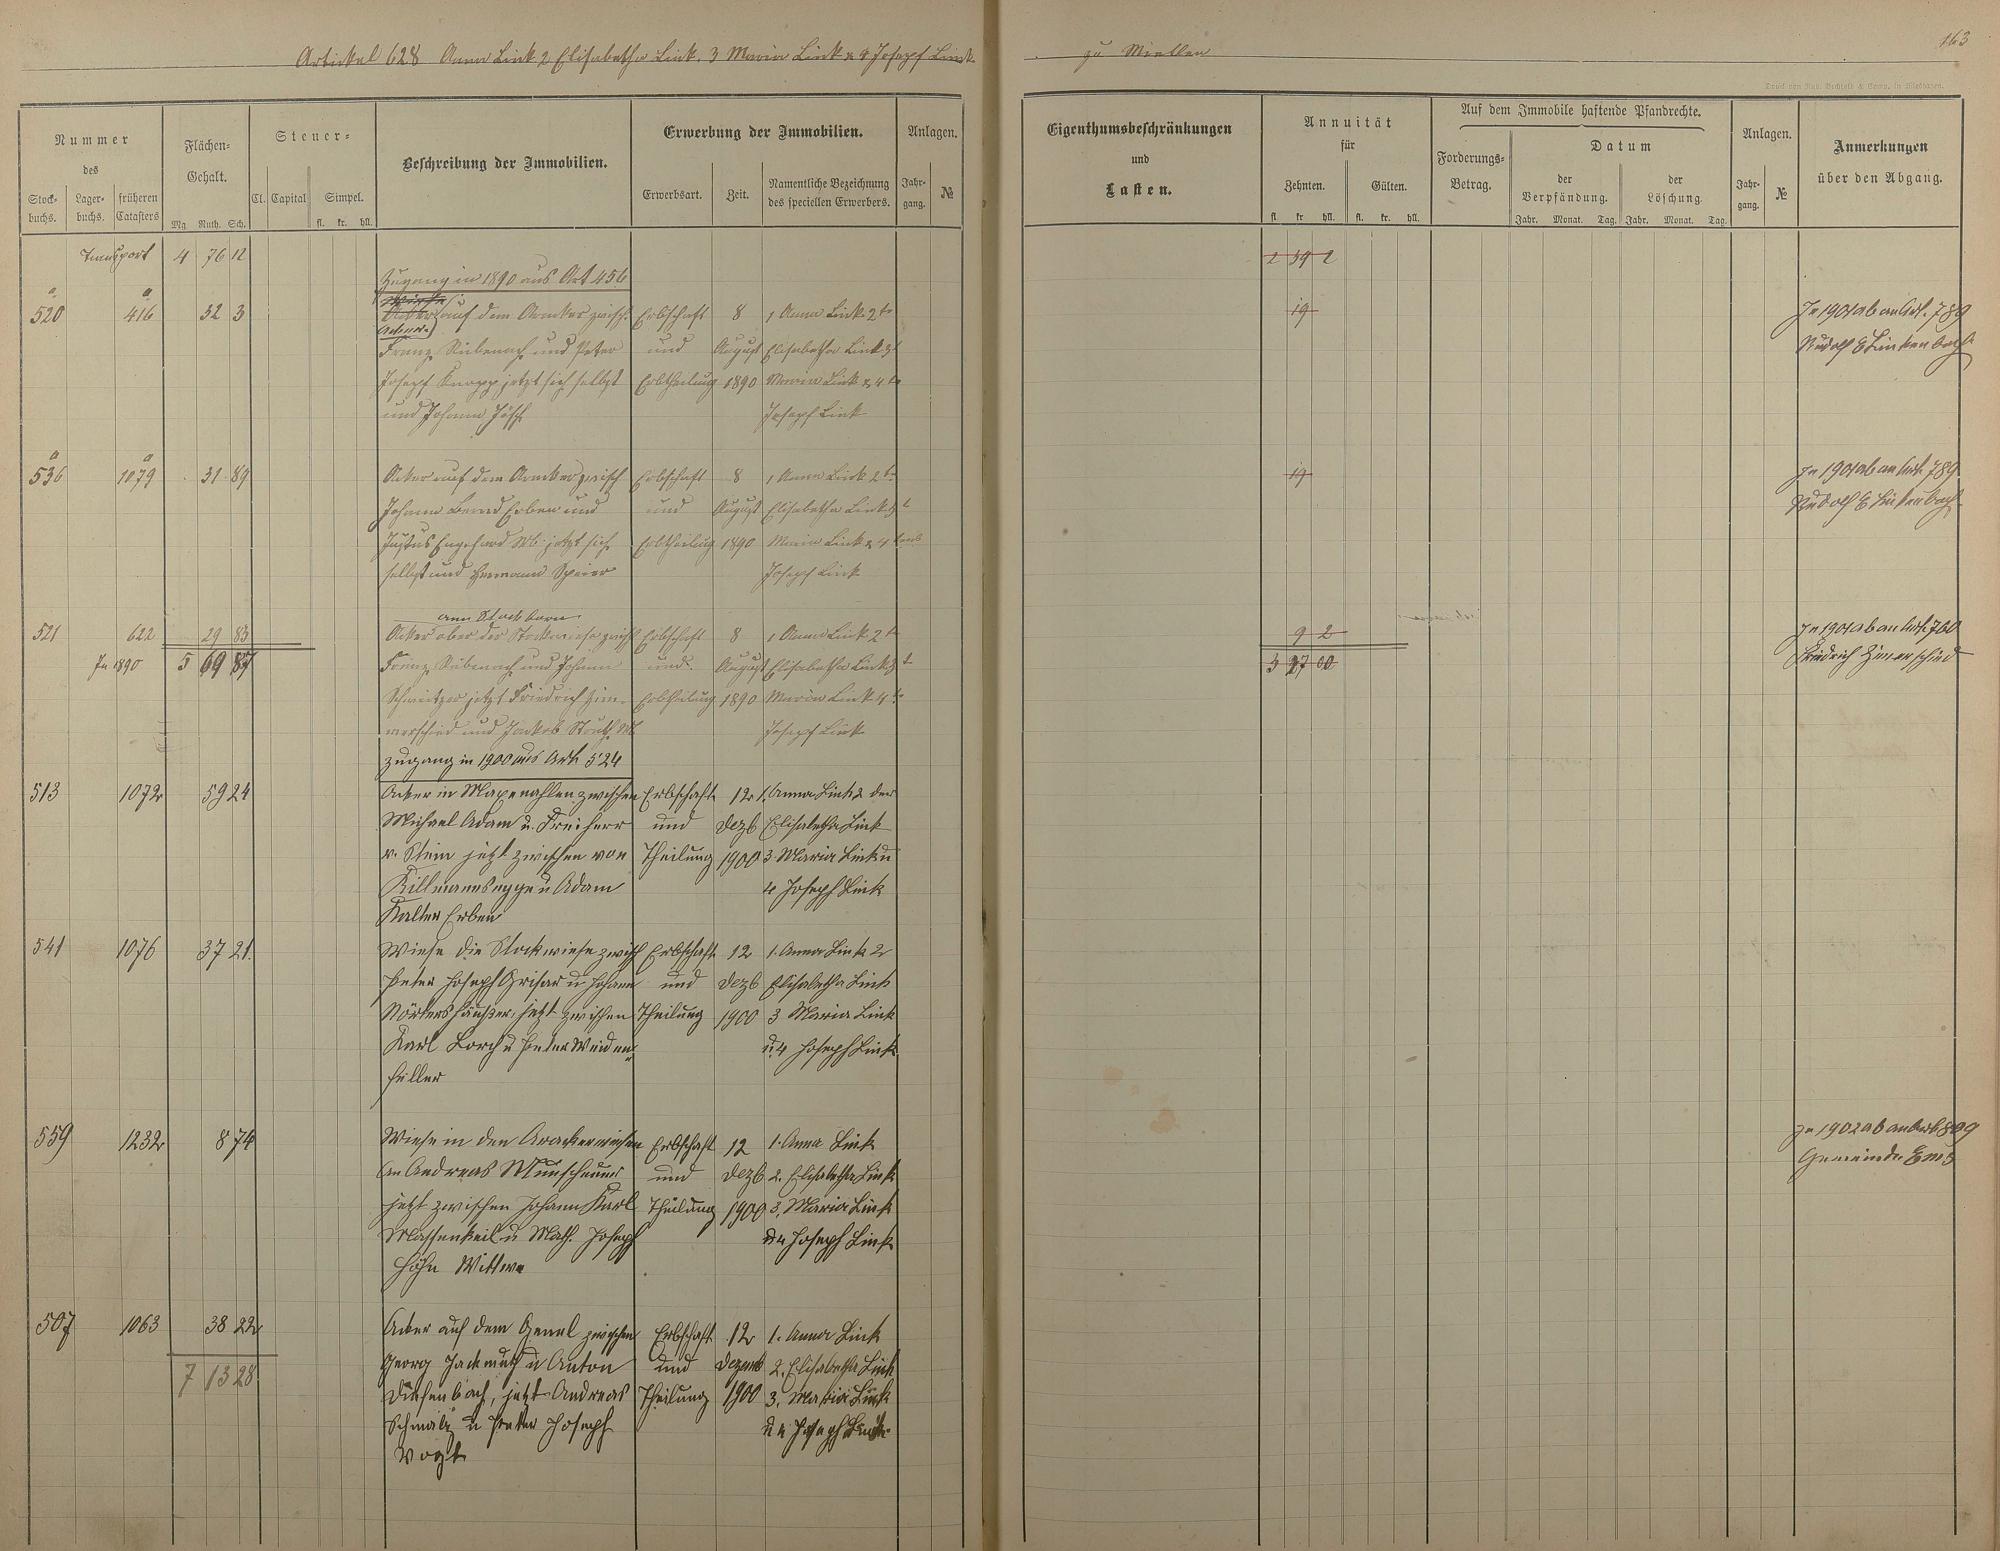 Artikel 628 Anna Link 2 Elisabetha Link. 3 Maria Link u 4 Joseph Link
zu Miellen
163
Druck von Rud. Bechtold & Comp. in Wiesbaden.
Nummer
des
Stock-
buchs.
Lager-
buchs.
früheren
Catasters
Flächen-
Gehalt.
Mg Ruth. Sch.
Steuer-
Cl. Capital Simpel.
fl. kr. hll.
Beschreibung der Immobilien.
Erwerbung der Immobilien.
Erwerbsart. Zeit. Namentliche Bezeichnung
des speciellen Erwerbers.
Anlagen.
Jahr-
gang. №
Eigenthumsbeschränkungen
und
Lasten.
Annuität
für
Zehnten. Gülten.
fl kr hll. fl. kr. hll.
Auf dem Immobile haftende Pfandrechte.
Forderungs-
Betrag.
Datum
der
Verpfändung.
der
Löschung.
Jahr. Monat. Tag. Jahr. Monat. Tag.
Anlagen.
Jahr-
gang. №
Anmerkungen
über den Abgang.
Transport 4 76 12 2 39 2
Zugang in 1890 aus Art 456
Wiese
a a
520 416 32 3 Acker auf dem zwisch. Erbschaft 8 1 Anna Link 2te 19 In 1901 ab an Art. 789
Franz Rübenach und Peter und August Elisabetha Link 3t Rudolf Linkenbach
Joseph Knopp jetzt sich selbst Erbtheilung 1890 Maria Link u 4te
und Johann Joseph Link
a a
536 1079 31 89 Acker auf dem zwisch Erbschaft 8 1 Anna Link 2te 19 In 1901 ab an Art. 789
Johann Bernd Erben und und August Elisabetha Link 3t Rudolf Linkenbach
Justus Engelhard Wb jetzt sich Erbtheilung 1890 Maria Link u 4tens
selbst und Hermann Speier Joseph Link
am Stockborn
521 622 29 83 Acker ober der Stockwiese zwisch Erbschaft 8 1 Anna Link 2te 9 2 In 1901 ab an Art. 760
In 1890 5 69 87 Franz Rübenach und Johann und. August Elisabetha Link 3t 3 27 00 Friedrich Zimerschied
Schweitzer jetzt Friedrich Zim- Erbtheilung 1890 Maria Link 4te
merschied und Jackob Wb Joseph Link
Zugang in 1900 aus Art 524
513 1072 59 24 Acker in zwischen Erbschaft 12 1. Anna Link 2
Michael Adam u. Freiherr und Dezb Elisabetha Link
v. Stein jetzt zwischen von Theilung 1900 3 Maria Link u
Killmannsegge u Adam 4 Joseph Link
Kalter Erben
541 1076 37 21. Wiese die Stockwiese zwisch Erbschaft 12 1. Anna Link 2
Peter Joseph Grisar u Johann und Dezb Elisabetha Link
Nörtershäußer, jetzt zwischen Theilung 1900 3 Maria Link
Karl Lorch u Peter Weiden- u. 4 Joseph Link
feller
559 1232 8 74 Wiese in den Erbschaft 12 1. Anna Link In 1902 ab an Art 809
an Andreas Munscheuer und Dezb 2. Elisabetha Link Gemeinde Ems
jetzt zwischen Johann Karl Theilung 1900 3. Maria Link
Massenkeil u Math. Joseph u 4 Joseph Link
Höhn Wittwe
507 1063 38 22 Acker auf dem zwischen Erbschaft 12 1. Anna Link
7 13 28 Georg Jackmuth u Anton und Dezemb 2. Elisabetha Link
Diefenbach, jetzt Andreas Theilung 1900 3. Maria Link
Schmalz u Peter Joseph u 4 Joseph Link
Vogt